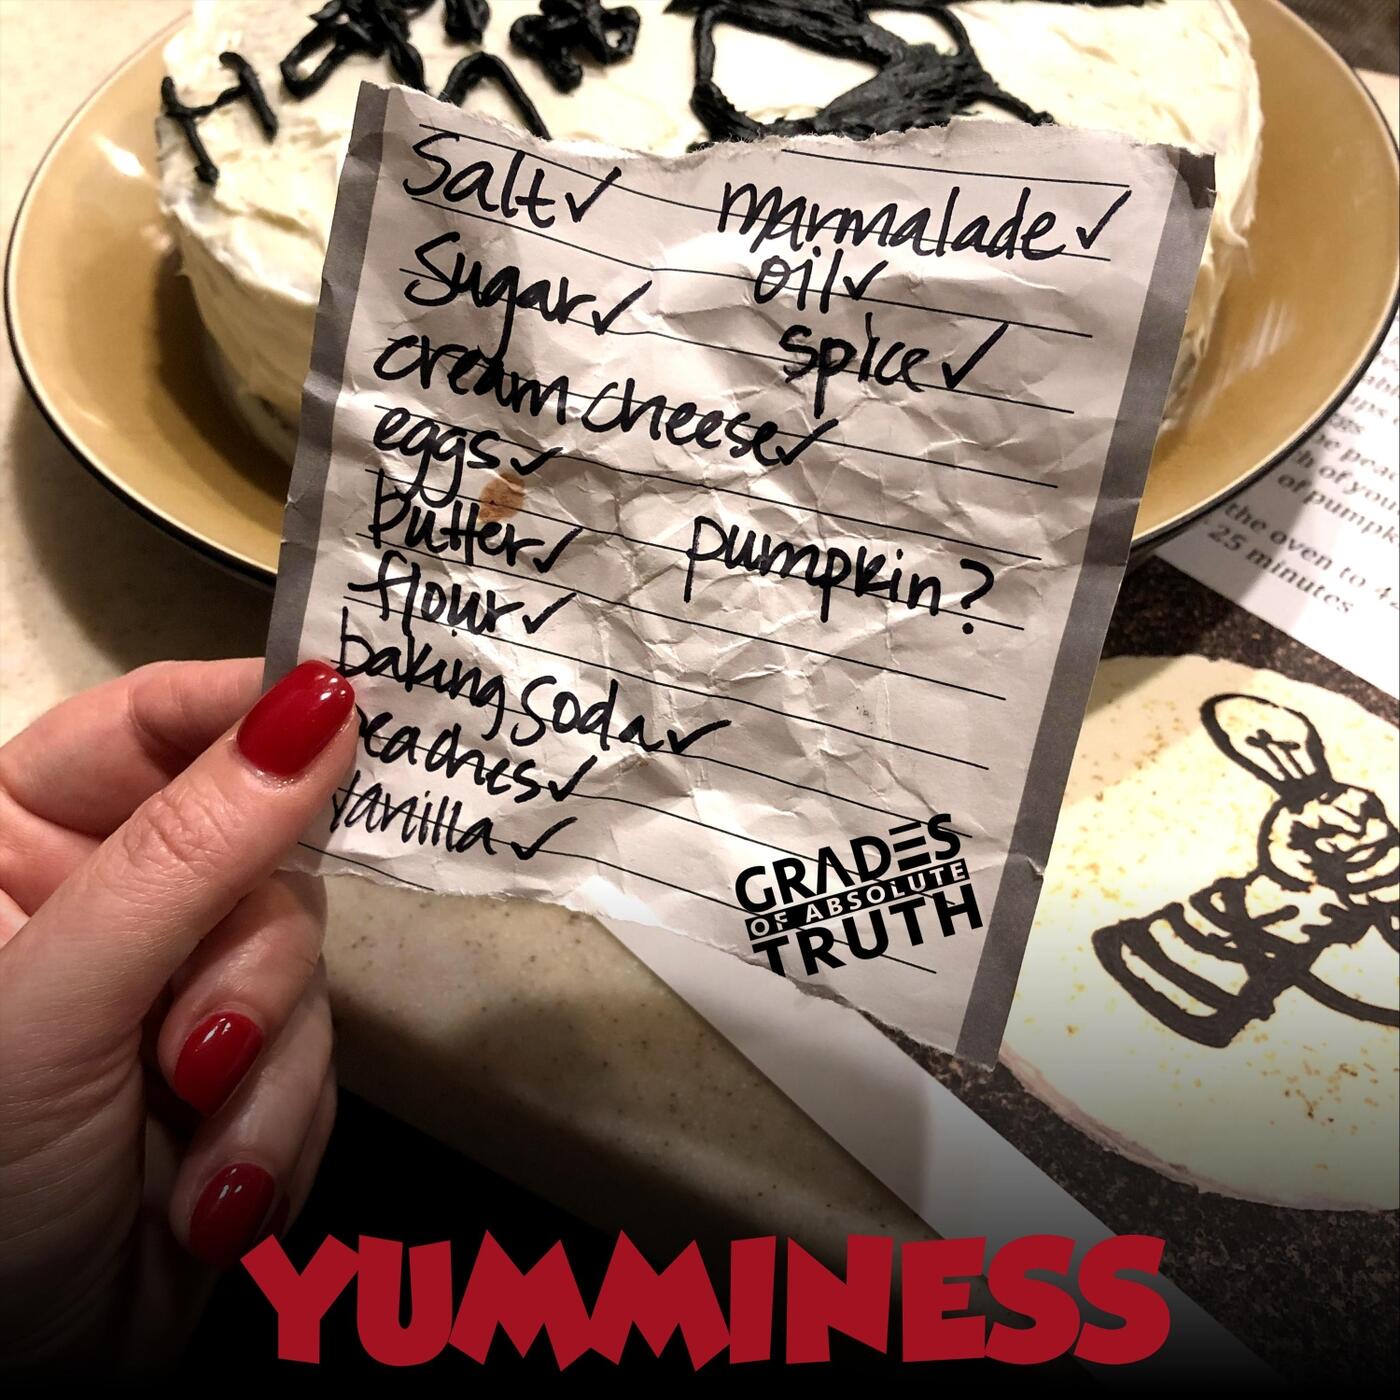 Salt✓
Sugar✓
cream cheese✓
eggs✓
butter✓
flour✓
baking soda✓
peaches✓
Vanilla✓
marmalade✓
oil✓
spice✓
pumpkin?
GRADES
OF ABSOLUTE
TRUTH
of pumpk
the oven to
25 minutes
YUMMINESS